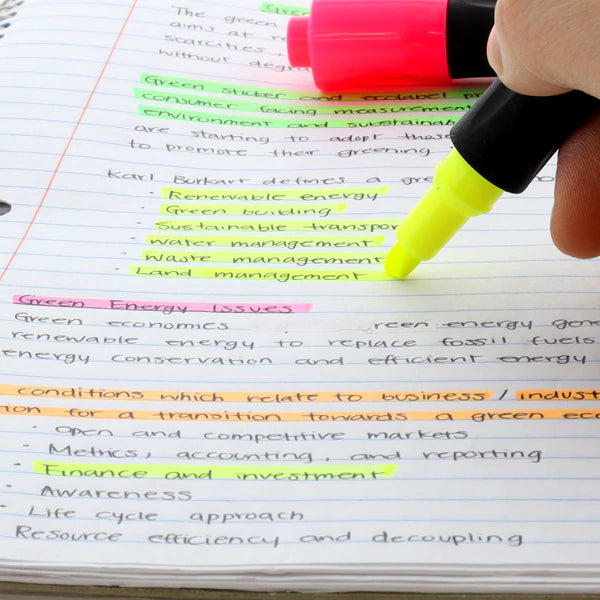 Gree
The green
aims at r
scarcities,
without degra
Green sticker and ecolabel pr
consumer facing measurement
environment and sustainab
are starting to adopt these
to promote their greening
Karl Burkart defines a gre
· Renewable energy
· Green building
· Sustainable transpor
· Water management
· Waste management
· Land management
Green Energy Issues
Green economies reen energy gene
renewable energy to replace fossil fuels
energy conservation and efficient energy
conditions which relate to business / indust
ion for a transition towards a green eco
· Open and competitive markets
· Metrics, accounting, and reporting
· Finance and investment
· Awareness
· Life cycle approach
Resource efficiency and decoupling